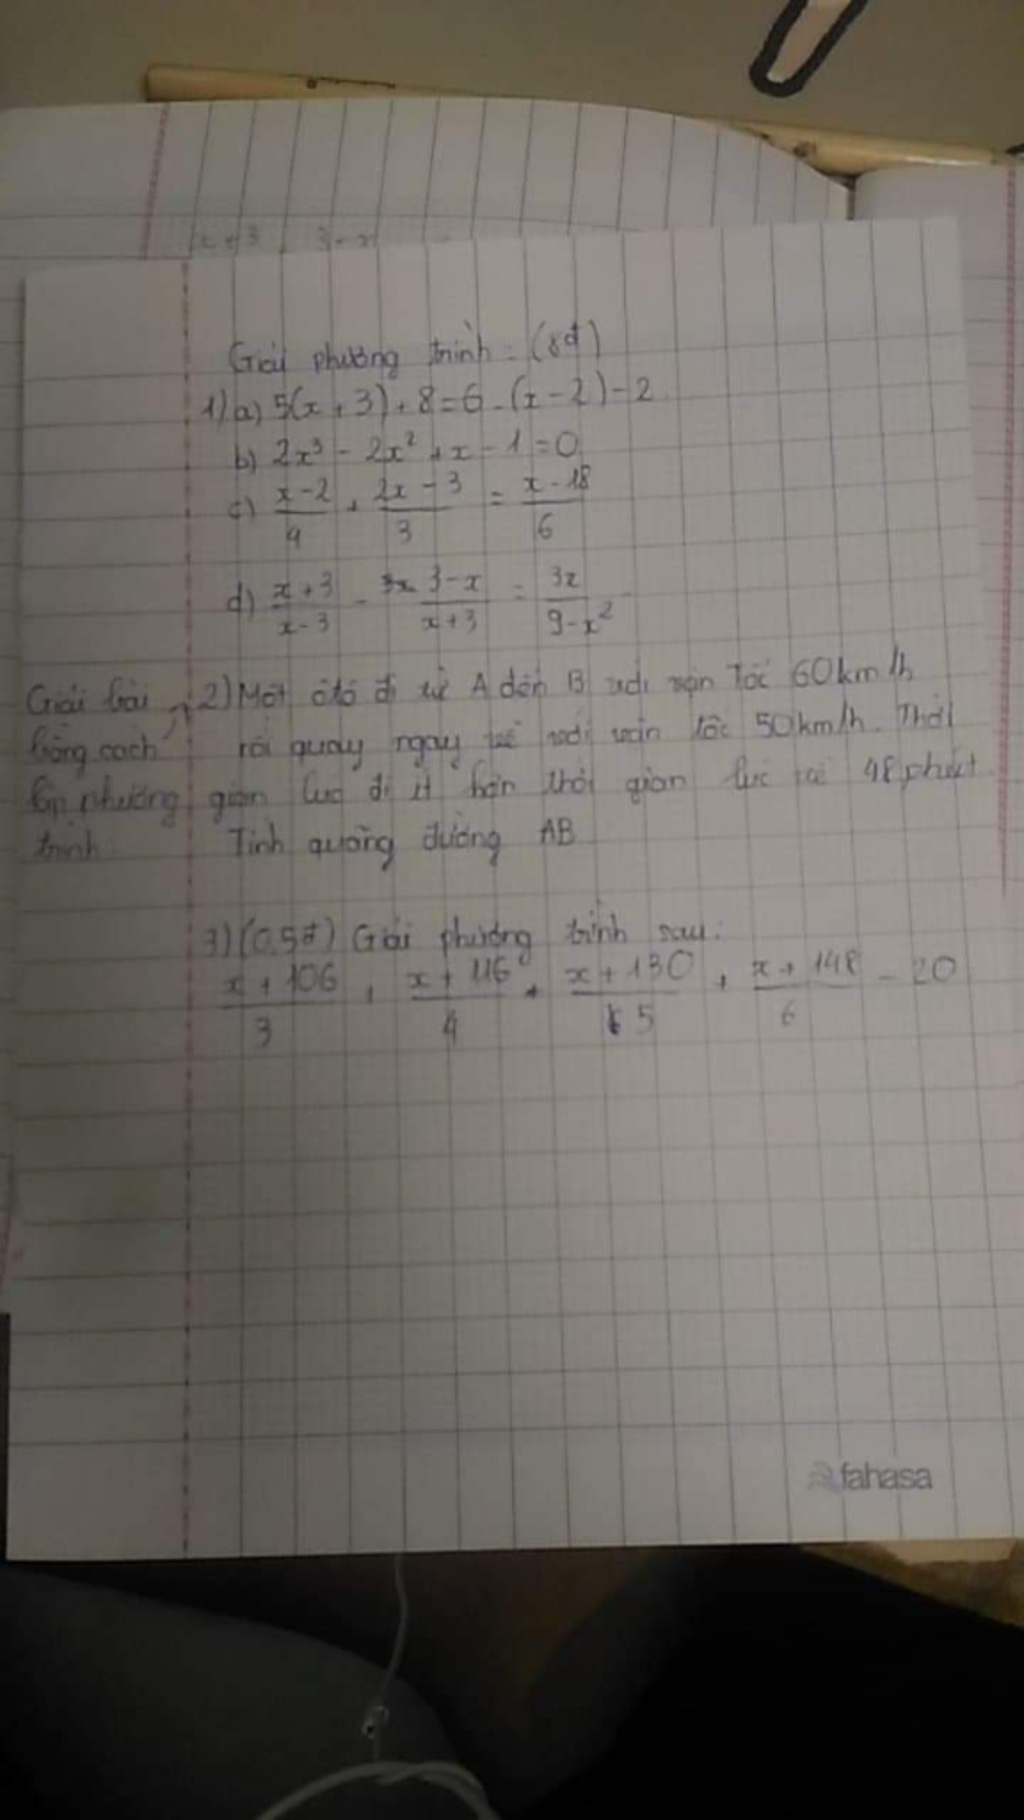 x+3 3-x
Giải phương trình: (8đ)
1) a) 5(x+3)+8=6-(x-2)-2
b) 2x³ - 2x² + x - 1 = 0
c) \frac{x-2}{4} + \frac{2x-3}{3} = \frac{x-18}{6}
d) \frac{x+3}{x-3} - \frac{3-x}{x+3} = \frac{3x}{9-x²}
Giải bài 2) Một ôtô đi từ A đến B với vận tốc 60km/h
bằng cách rồi quay ngay về với vận tốc 50km/h. Thời
lập phương gian lúc đi ít hơn thời gian lúc về 48 phút
trình Tính quãng đường AB
3) (0,5đ) Giải phương trình sau:
\frac{x+106}{3} + \frac{x+116}{4} + \frac{x+130}{5} + \frac{x+148}{6} = 20
fahasa